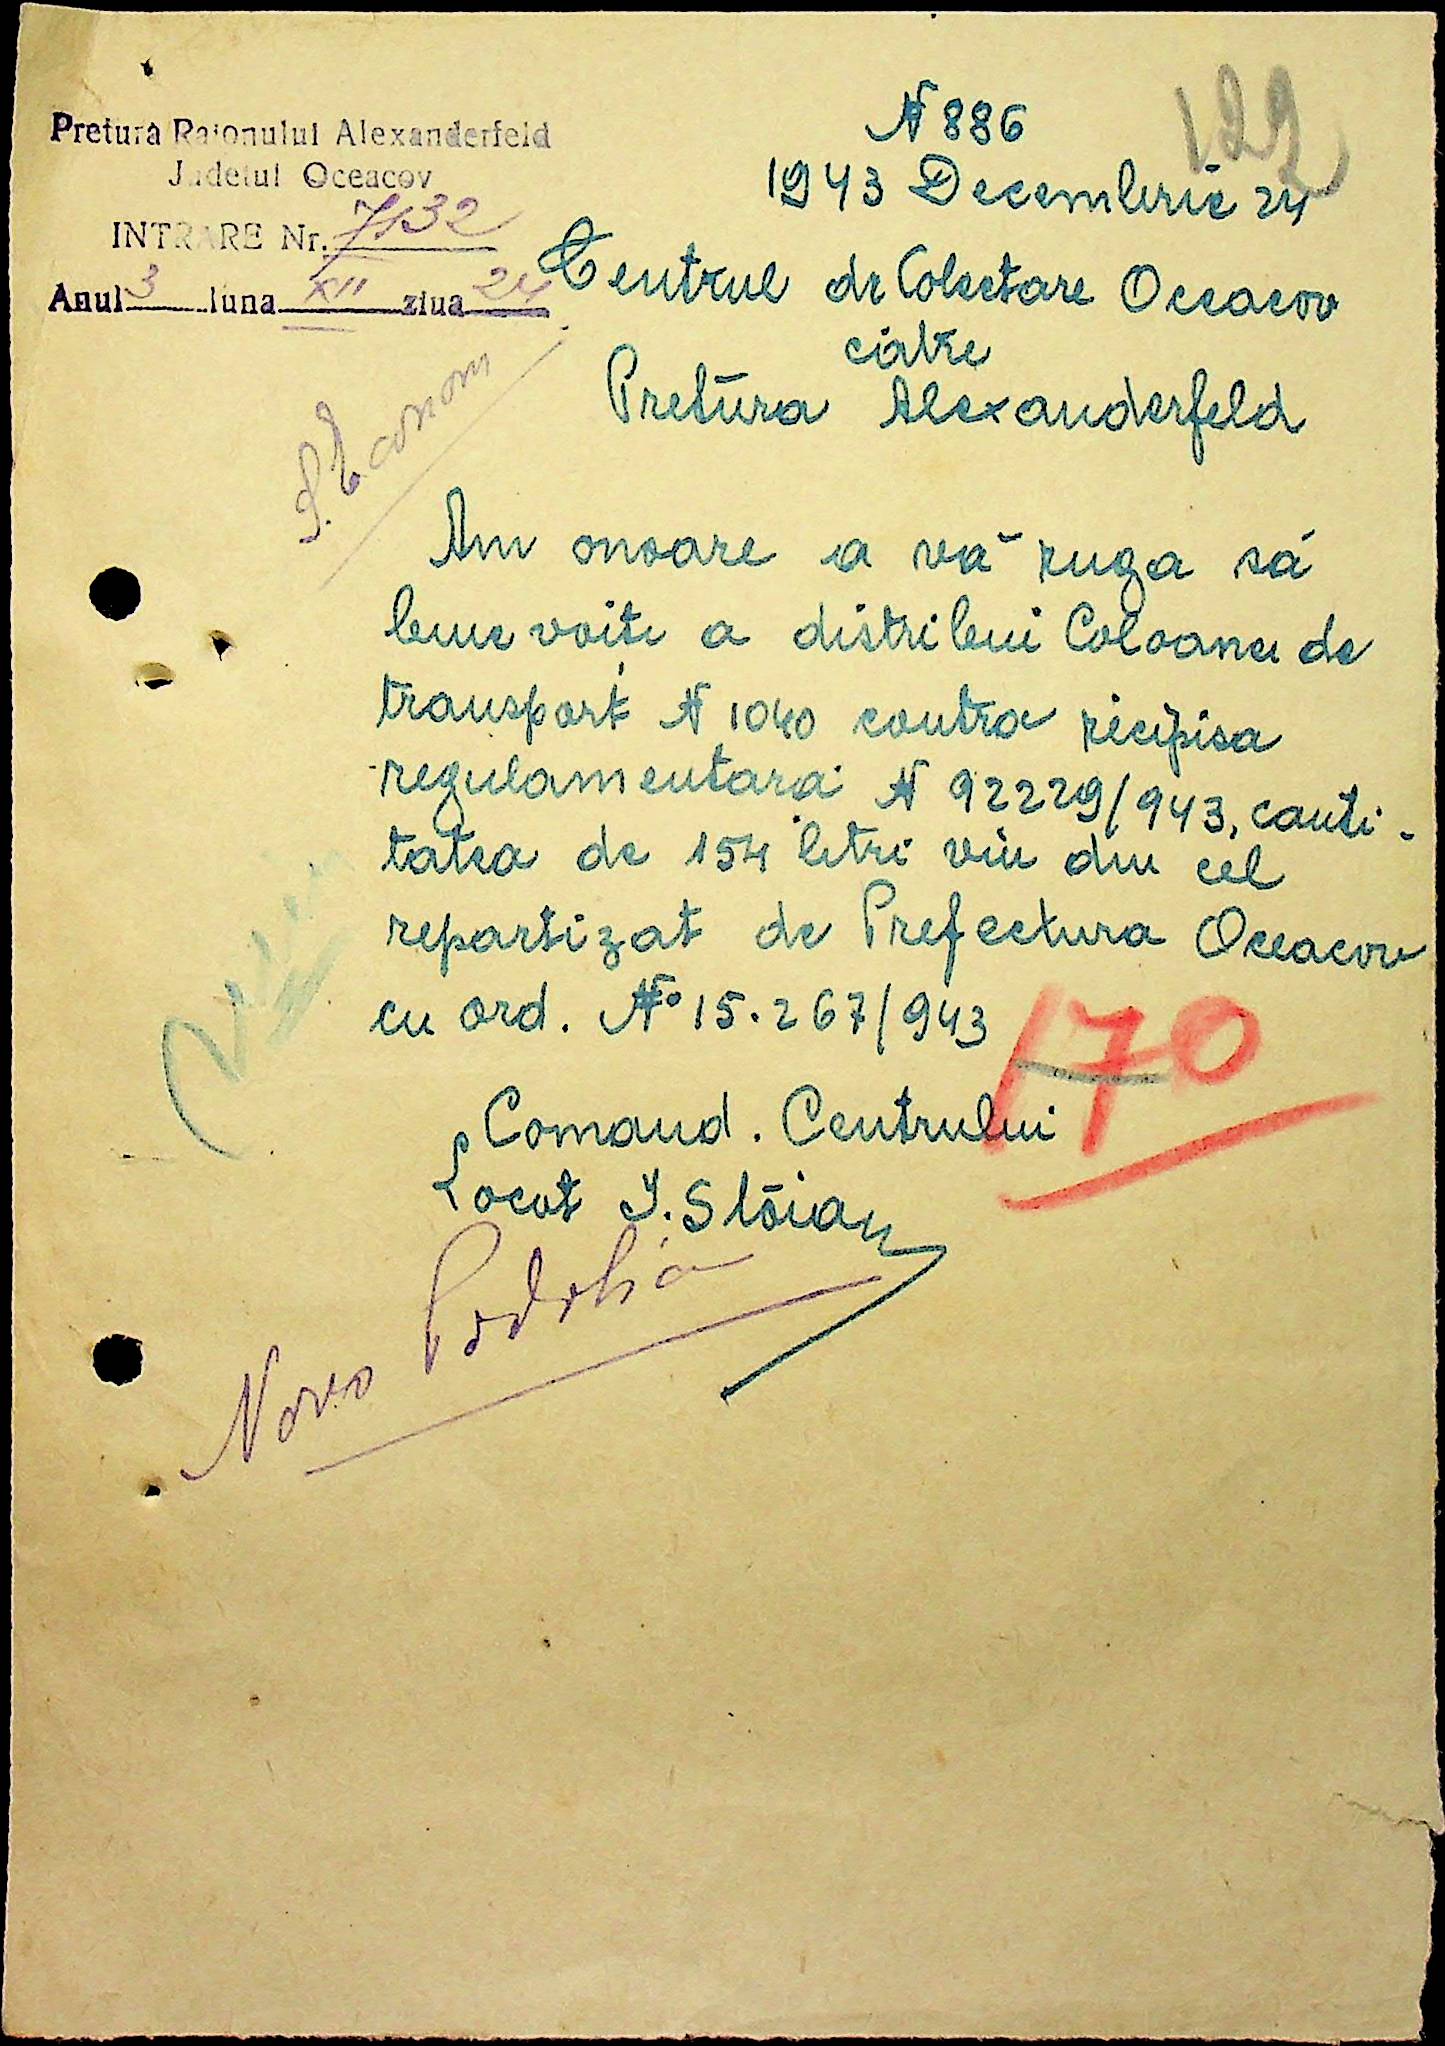 129
Pretura Raionului Alexanderfeld
Judetul Oceacov
INTRARE Nr. 7132
Anul 3 luna XII ziua 24
N 886
1943 Decembrie 24
Centrul de Colectare Oceacov
cátre
Pretura Alexanderfeld
S. Econom
Am onoare a vă ruga sá
bine voiti a distribui Coloanei de
transport N 1040 contra recipisa
regulamentara N 92229/943, canti-
tatea de 154 litri vin din cel
repartizat de Prefectura Oceacov
cu ord. No 15.267/943
170
Comand. Centrului
Locot I. Stoian
Novo Podolia